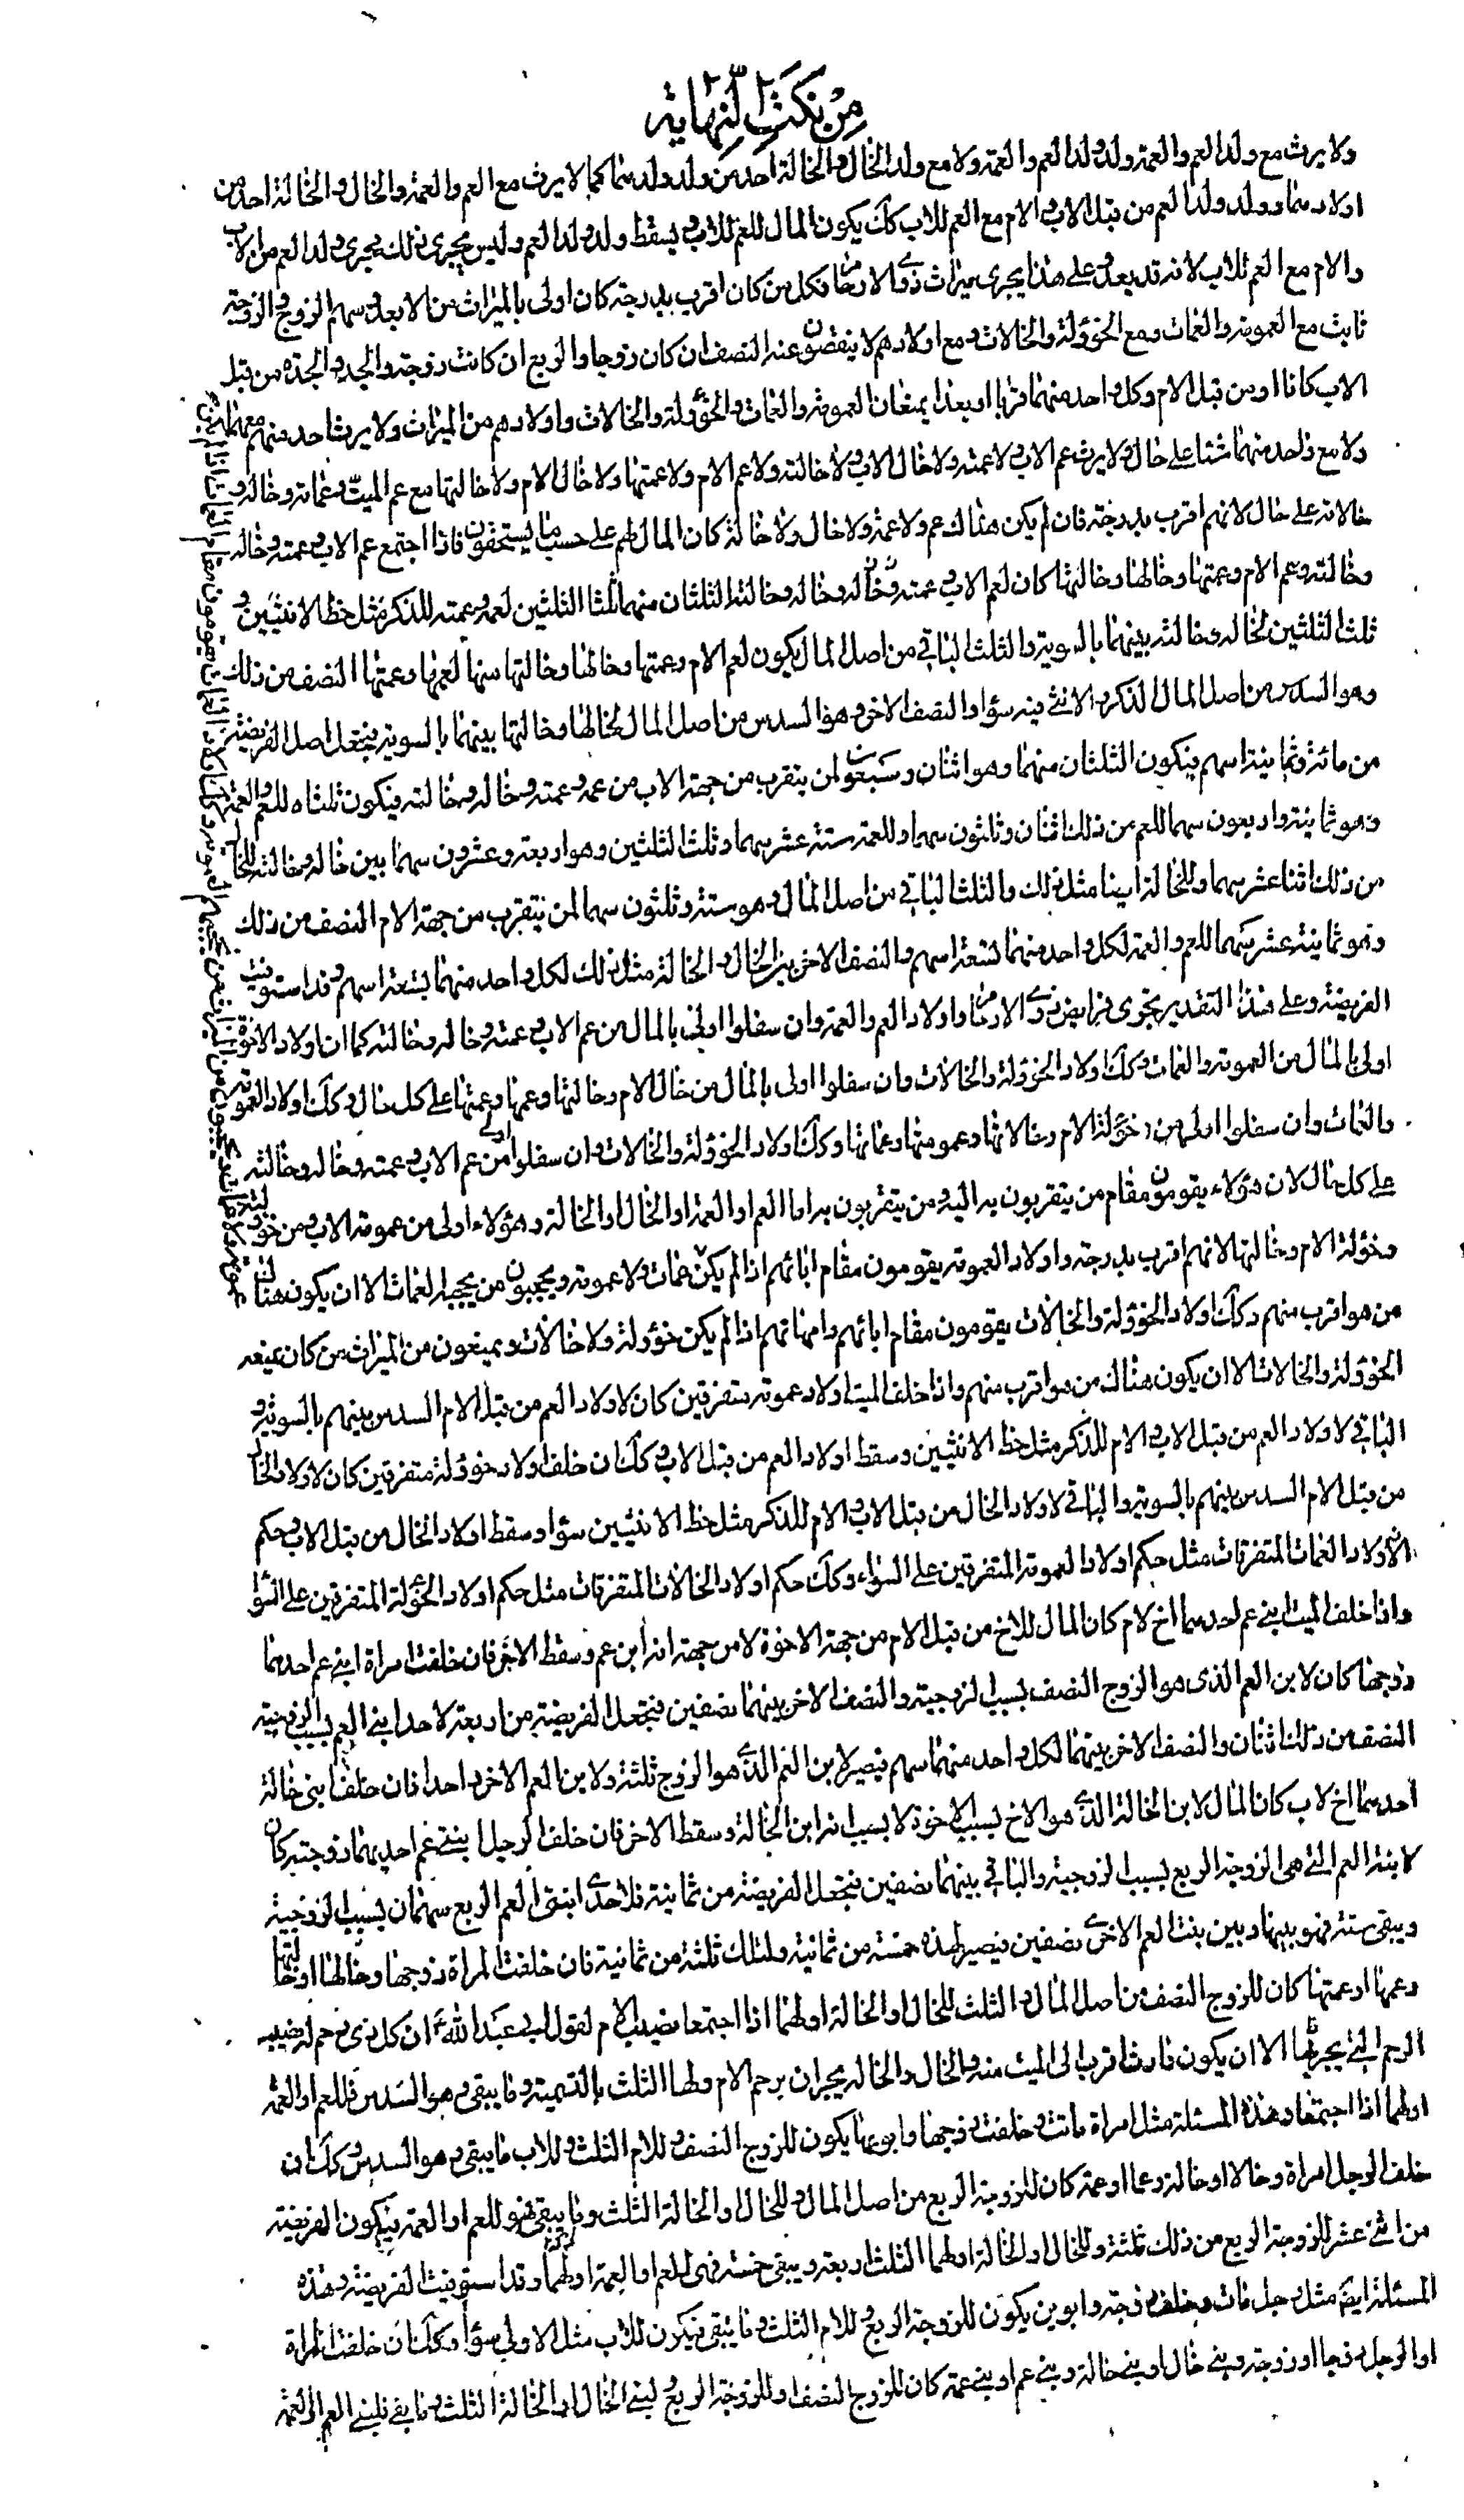 من نكت النهاية
ولا يرث مع ولد العم والعمة ولد ولد العم والعمة ولا مع ولد الخال والخالة احد من ولد ولدهما كما لا يرث مع العم والعمة والخال والخالة احد من
اولادهما وولد ولد العم من قبل الاب والام مع العم للاب كك يكون المال للعم للاب ويسقط ولد ولد العم وليس يجري ذلك مجرى ولد العم من الاب
والام مع العم للاب لانه قد بعد وعلى هذا يجري ميراث ذوي الارحام فكل من كان اقرب بدرجة كان اولى بالميراث من الابعد وسهم الزوج والزوجة
ثابت مع العمومة والعمات ومع الخؤولة والخالات ومع اولادهم لا ينقصون عنه النصف ان كان زوجا والربع ان كانت زوجة والجد والجدة من قبل
الاب كانا او من قبل الام وكل واحد منهما قربا او بعدا يمنعان العمومة والعمات والخؤولة والخالات واولادهم من الميراث ولا يرث احد منهم معهما
ولا مع واحد منهما شئا على حال ولا يرث عم الاب ولا عمته ولا خال الاب ولا خالته ولا عم الام ولا عمتها ولا خال الام ولا خالتها مع عم الميت وعماته وخاله و
خالاته على حال لانهم اقرب بدرجة فان لم يكن هناك عم ولا عمة ولا خال ولا خالة كان المال لهم على حسب ما يستحقون فاذا اجتمع عم الاب وعمته وخاله
وخالته وعم الام وعمتها وخالها وخالتها كان لعم الاب وعمته وخاله وخالته الثلثان منهما ثلثا الثلثين لعمه وعمته للذكر مثل حظ الانثيين و
ثلث الثلثين لخاله وخالته بينهما بالسوية والثلث الباقي من اصل المال يكون لعم الام وعمتها وخالها وخالتها منها لعمها وعمتها النصف من ذلك
وهو السدس من اصل المال الذكر والانثى فيه سواء والنصف الاخر وهو السدس من اصل المال لخالها وخالتها بينهما بالسوية فيجعل اصل الفريضة
من مائة وثمانية اسهم فيكون الثلثان منهما وهو اثنان وسبعون لمن يتقرب من جهة الاب من عمه وعمته وخاله وخالته فيكون ثلثاه للعم والعمة
وهو ثمانية واربعون سهما للعم من ذلك اثنان وثلثون سهما وللعمة ستة عشر سهما وثلث الثلثين وهو اربعة وعشرون سهما بين خاله وخالته للخال
من ذلك اثنا عشر سهما وللخالة ايضا مثل ذلك والثلث الباقي من اصل المال وهو ستة وثلثون سهما لمن يتقرب من جهة الام النصف من ذلك
وهو ثمانية عشر سهما للعم والعمة لكل واحد منهما تسعة اسهم والنصف الاخر بين الخال والخالة مثل ذلك لكل واحد منهما تسعة اسهم وقد استوفيت
الفريضة وعلى هذا التقدير تجري فرايض ذوي الارحام واولاد العم والعمة وان سفلوا اولى بالمال من عم الاب وعمته وخاله وخالته كما ان اولاد الاخوة
اولى بالمال من العمومة والعمات وكك اولاد الخؤولة والخالات وان سفلوا اولى بالمال من خال الام وخالتها وعمها وعمتها على كل حال وكك اولاد العمومة
والعمات وان سفلوا اولى من خؤولة الام وخالاتها وعمومتها وعماتها وكك اولاد الخؤولة والخالات وان سفلوا اولى من عم الاب وعمته وخاله وخالته
على كل حال لان هؤلاء يقومون مقام من يتقربون به اليه ومن يتقربون به اما العم او العمة او الخال او الخالة وهؤلاء اولى من عمومة الاب ومن خؤولته
وخؤولة الام وخالتها لانهم اقرب بدرجة واولاد العمومة يقومون مقام ابائهم اذا لم يكن عمات ولا عمومة ويحجبون من يحجبه العمات الا ان يكون هناك
من هو اقرب منهم وكك اولاد الخؤولة والخالات يقومون مقام ابائهم وامهاتهم اذا لم يكن خؤولة ولا خالات ويمنعون من الميراث من كان يمنعه
الخؤولة والخالات الا ان يكون هناك من هو اقرب منهم واذا خلف الميت اولاد عمومة متفرقين كان لاولاد العم من قبل الام السدس بينهم بالسوية و
الباقي لاولاد العم من قبل الاب والام للذكر مثل حظ الانثيين وسقط اولاد العم من قبل الاب وكك ان خلف اولاد خؤولة متفرقين كان لاولاد الخال
من قبل الام السدس بينهم بالسوية والباقي لاولاد الخال من قبل الاب والام للذكر مثل حظ الانثيين سواء وسقط اولاد الخال من قبل الاب وحكم
الاولاد العمات المتفرقات مثل حكم اولاد العمومة المتفرقين على السواء وكك حكم اولاد الخالات المتفرقات مثل حكم اولاد الخؤولة المتفرقين على السواء
واذا خلف الميت ابني عم احدهما اخ لام كان المال للاخ من قبل الام من جهة الاخوة لا من جهة انه ابن عم وسقط الاخر فان خلفت امراة ابني عم احدهما
زوجها كان لابن العم الذي هو الزوج النصف بسبب الزوجية والنصف الاخر بينهما نصفين فتجعل الفريضة من اربعة لاحد ابني العم بسبب الزوجية
النصف من ذلك اثنان والنصف الاخر بينهما لكل واحد منهما سهم فيصير لابن العم الذي هو الزوج ثلثة ولابن العم الاخر واحد فان خلف ابني خالة
احدهما اخ لاب كان المال لابن الخالة الذي هو الاخ بسبب الاخوة لا بسبب انه ابن الخالة وسقط الاخر فان خلف الرجل ابنتي عم احديهما زوجته كان
لابنة العم التي هي الزوجة الربع بسبب الزوجية والباقي بينهما نصفين فتجعل الفريضة من ثمانية فلاحدى ابنتي العم الربع سهمان بسبب الزوجية
ويبقى ستة فهو بينها وبين بنت العم الاخرى نصفين فيصير لهذه خمسة من ثمانية ولتلك ثلثة من ثمانية فان خلفت المراة زوجها وخالها او خالتها
وعمها او عمتها كان للزوج النصف من اصل المال والثلث للخال او الخالة او لهما اذا اجتمعا نصيب الام لقول ابي عبد الله ع ان كل ذي رحم له نصيب
الرحم التي يجر بها الا ان يكون وارث اقرب الى الميت منه والخال والخالة يجران برحم الام ولها الثلث بالتسمية وما يبقى وهو السدس فللعم او العمة
او لهما اذا اجتمعا وهذه المسئلة مثل امراة ماتت وخلفت زوجها وابويها يكون للزوج النصف وللام الثلث وللاب ما يبقى وهو السدس وكك ان
خلف الرجل امراة وخالا او خالة وعما او عمة كان للزوجة الربع من اصل المال وللخال او الخالة الثلث وما يبقى فهو للعم او العمة فيكون الفريضة
من اثني عشر للزوجة الربع من ذلك ثلثة وللخال او الخالة او لهما الثلث اربعة ويبقى خمسة فهي للعم او العمة او لهما وقد استوفيت الفريضة وهذه
المسئلة ايضا مثل رجل مات وخلف زوجة وابوين يكون للزوجة الربع وللام الثلث وما يبقى فيكون للاب مثل الاولى سواء وكك ان خلفت المراة
او الرجل زوجا او زوجة وبني خال او بني خالة وبني عم او بني عمة كان للزوج النصف وللزوجة الربع ولبني الخال او الخالة الثلث وما بقي فلبني العم او العمة